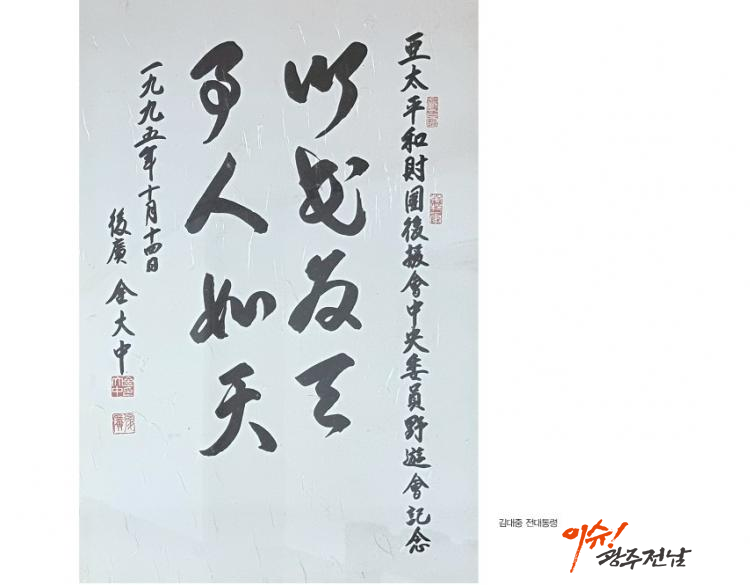 亞太平和財團後援會中央委員野遊會記念
以民為天
事人如天
一九九五年十月十四日
後廣 金大中
김대중 전대통령
이슈!
광주전남